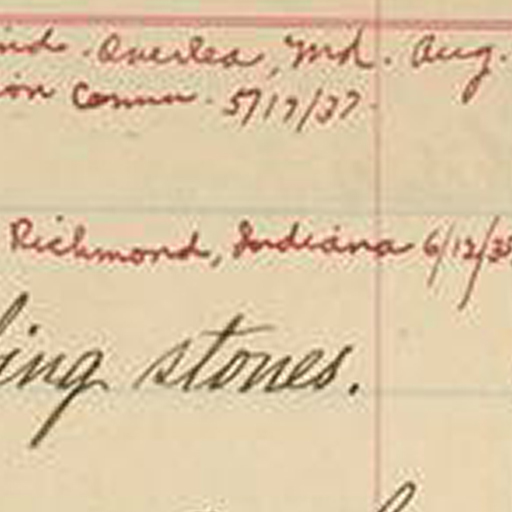 Overlea, Md. Aug.
on Comm. 5/17/37
Richmond, Indiana 6/12/3
ing stones.